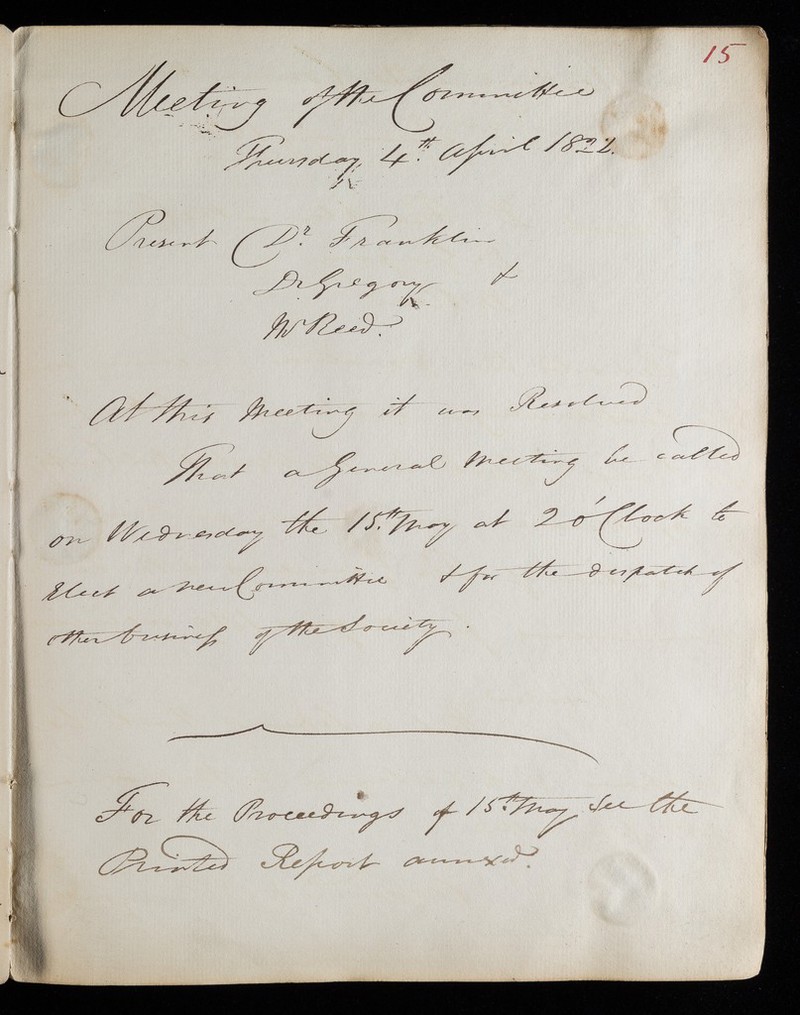 15
Meeting of the Committee
Thursday, 4.th April 1822.
Present Dr. Franklin
Dr Gregory &
Mr Reed.
At this Meeting it was Resolved
That a General Meeting be called
on Wednesday the 15.th May at 2 o'Clock to
Elect a new Committee & for the despatch of
other business of the Society.
For the Proceedings of 15th May, See the
Printed Report annexed.